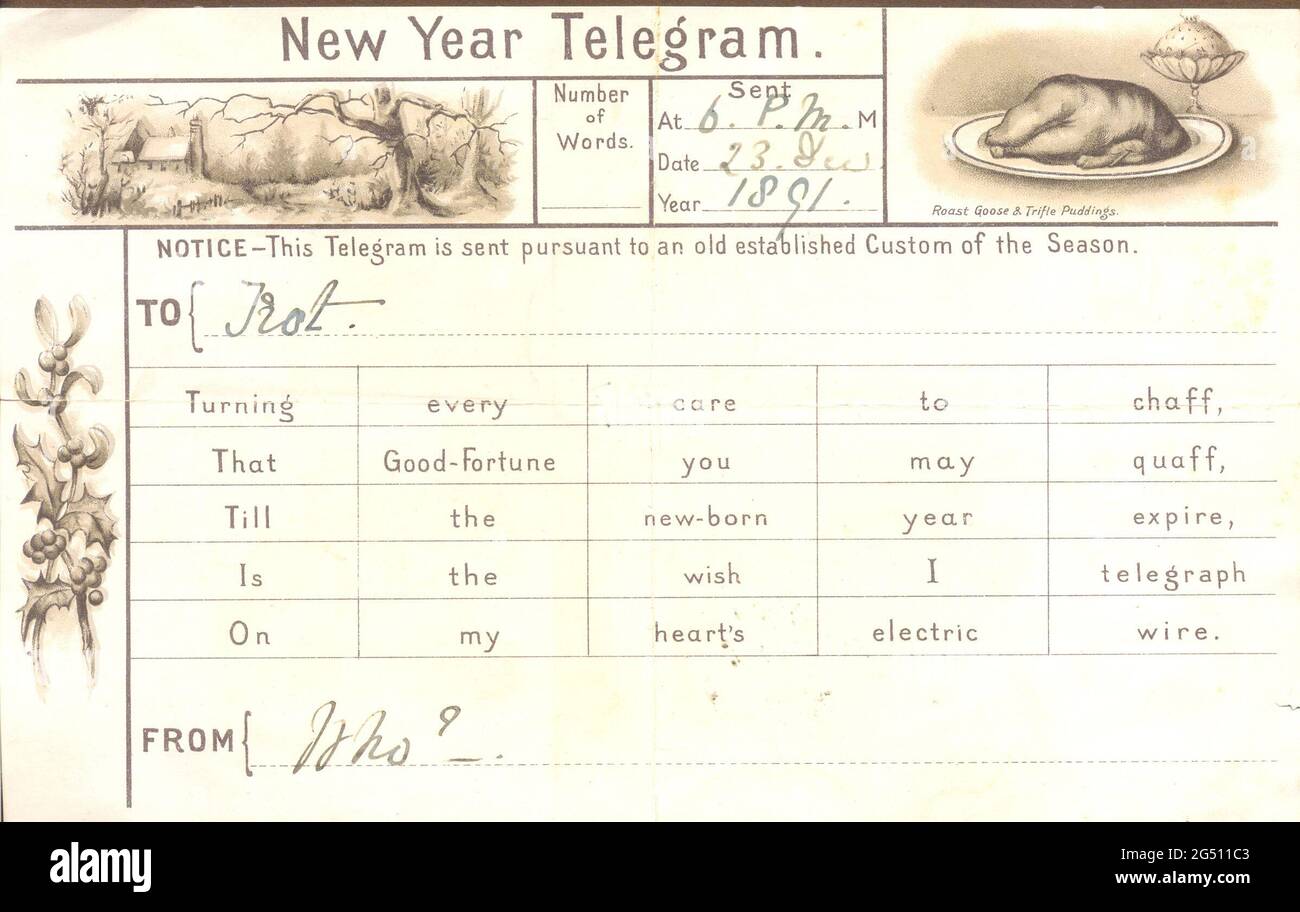 New Year Telegram.
Number
of
Words.
Sent
At 6. P.M. M
Date 23. Dec
Year 1891.
Roast Goose & Trifle Puddings.
NOTICE–This Telegram is sent pursuant to an old established Custom of the Season.
TO { Trot.
Turning every care to chaff,
That Good-Fortune you may quaff,
Till the new-born year expire,
Is the wish I telegraph
On my heart's electric wire.
FROM { Who?
a
alamy
Image ID: 2G511C3
www.alamy.com